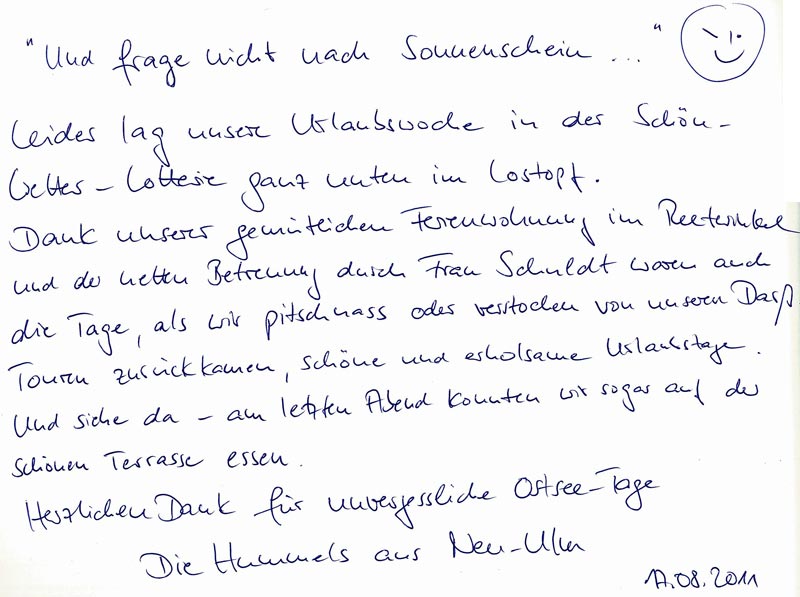 "Und frage nicht nach Sonnenschein ..."
Leider lag unsere Urlaubswoche in der Schön-
Wetter-Lotterie ganz unten im Lostopf.
Dank unserer gemütlichen Ferienwohnung im Reetwinkel
und der netten Betreuung durch Frau Schuldt waren auch
die Tage, als wir pitschnass oder verstochen von unseren Darß
Touren zurückkamen, schöne und erholsame Urlaubstage.
Und siehe da - am letzten Abend konnten wir sogar auf der
schönen Terrasse essen.
Herzlichen Dank für unvergessliche Ostsee-Tage
Die Hummels aus Neu-Ulm
17.08.2011